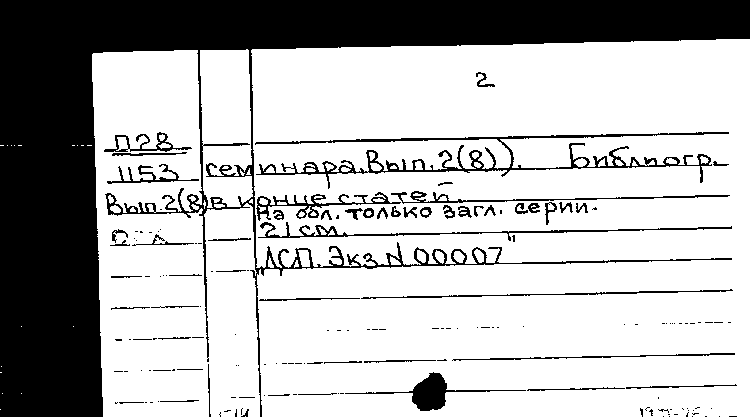 2
П28
1153 семинара. Вып. 2(8)). Библиогр.
Вып. 2(8) в конце статей.
На обл. только загл. серии.
21 см.
"ДСП. Экз N 00007"